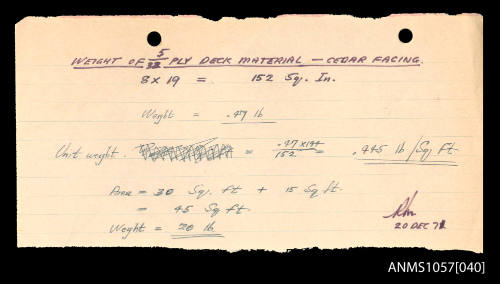 WEIGHT OF 5/32 PLY DECK MATERIAL — CEDAR FACING.
8 x 19 = 152 Sq. In.
Weight = .47 lb
Unit weight. = .47 x 144 / 152 = .445 lb/Sq Ft.
Area = 30 Sq. ft + 15 Sq ft.
= 45 Sq ft.
Weight = 20 lb.
20 DEC 71
ANMS1057[040]